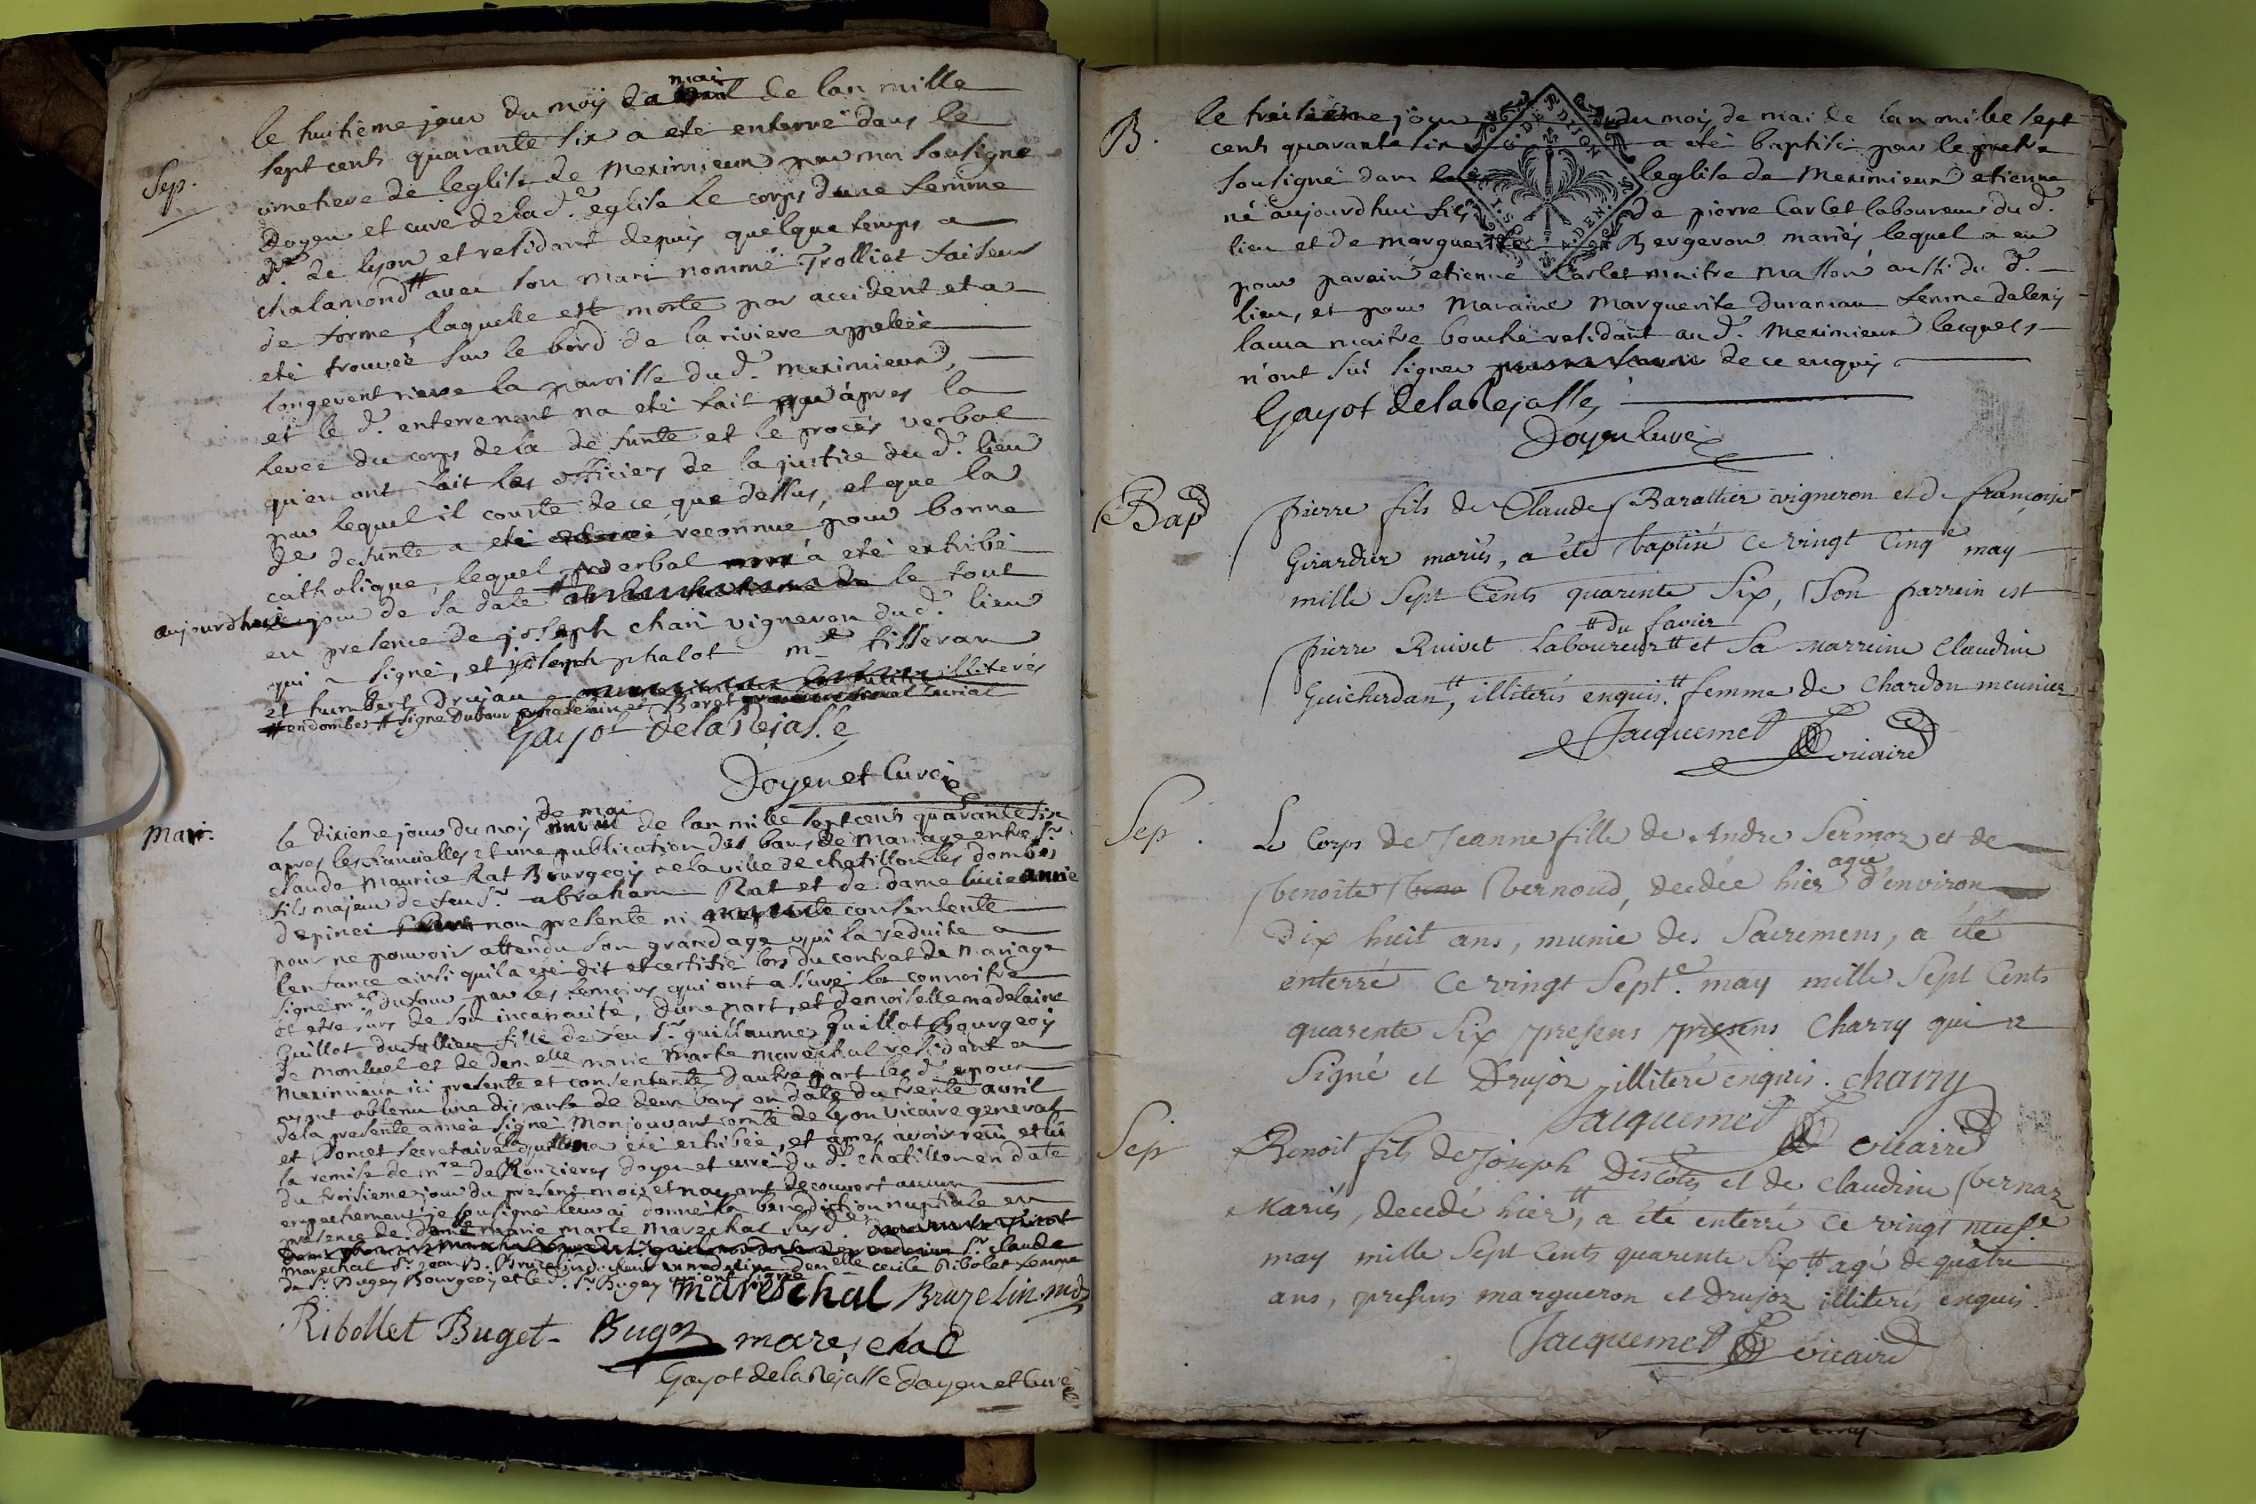 le huitieme jour du mois de mai de lan mille
sept cents quarante six a eté enterré dans le
Sep.
cimetiere de leglise de Meximieux par moi sousigné
doyen et curé de la d. eglise le corps dune femme
de lyon et residant depuis quelque temps a
chalamond avec son mari nommé Trolliet faiseur
de forme, laquelle est morte par accident et a
eté trouvée sur le bord de la riviere appellée
longevent riere la paroisse du d. meximieux,
et le d. enterrement na eté fait qu'apres la
levée du corps de la defunte et le procés verbal
qu'en ont fait les officiers de la justice du d. lieu
par lequel il conste de ce que dessus, et que la
de defunte a eté reconnue pour bonne
catholique, lequel verbal a eté exhibé
aujourdhui jour de sa date le tout
en presence de joseph chari vigneron du d. lieu
qui a signé, et joseph phalot me tisseran
et humbert Drujau illiterés
en dombes signé Dufour chatelain et Baret
Gayot delaRejasse
Doyen et Curé
Mari.
de mai
le dixieme jour du mois de lan mille sept cents quarante six
apres les fiancialles et une publication des bans de Mariage entre Sr.
claude Maurice Rat Bourgeois de la ville de chatillon les dombes
fils majeur de feu Sr. abraham Rat et de dame lucie annie
depinei non presente ni consentente
pour ne pouvoir attendu son grand age qui la reduite a
lenfance ainsi quil a eté dit et certifié lors du contrat de Mariage
signé me dufour par les temoins qui ont assuré la connoitre
et etre surs de son incapacité, dune part, et demoiselle madelaine
Guillot dufollieu fille de feu Sr. guillaume Guillot Bourgeois
de Montluel et de demelle marie Marte mareschal residant a
Meximieux ici presente et consentente dautre part les d. epoux
ayant obtenu une dispense de deux bans en date du trente avril
de la presente année signé Monjouvant comte de lyon vicaire general
et Poncet secretaire la quelle a eté exhibée, et apres avoir veu et lu
la remise de mre de Rouzieres doyen et curé du d. chatillon en date
du troisieme jour du present mois et nayant decouvert aucun
empechement je sousigné leur ai donné la benediction nuptiale en
presence de demelle marie marte Mareschal sus d.
Sr. claude
Marechal Sr. jean B. Bruzelin docteur en medecine demelle cecile Ribolet femme
du Sr. Buget Bourgeois et le d. Sr. Buget qui ont signé
mareschal Bruzelin md
Ribollet Buget Buget mareschal
Gayot delaRejasse doyen et Curé
B.
le treisieme jour du mois de mai de lan mille sept
cents quarante six a eté baptisé par le pretre
sousigné dans leglise de Meximieux etienne
né aujourdhui fils de pierre Carlet laboureur du d.
lieu et de marguerite Bergeron mariés, lequel a eu
pour parain etienne Carlet maitre Masson aussi du d.
lieu, et pour Maraine Marguerite Duraniau femme dalexis
lacua maitre bouché residant au d. Meximieux lesquels
n'ont sú signer de ce enquis
Gayot delaRejasse
Doyen Curé
Bap
Pierre fils de Claude Barattier vigneron et de françoise
Girardier mariés, a été baptisé ce vingt Cinqe may
mille Sept Cents quarente Six, Son parrein est
du favier
pierre Ruivet Laboureur et Sa marreine Claudine
Guicherdan, illiterés enquis. femme de Chardon meunier
Jacquemet vicaire
Sep.
Le Corps de Jeanne fille de Andre Sermoz et de
agée
benoite Bernoud, decedée hier d'environ
Dix huit ans, munie des Sacremens, a été
enterré ce vingt Septe. may mille Sept Cents
quarente Six presens presens Charry qui a
Signé et Drujoz illiteré enquis. charry
Jacquemet vicaire
Sep
Benoit fils de Joseph Descotes et de claudine bernaz
Mariés, decedé hier, a été enterré ce vingt neufe
may mille Sept Cents quarente Six agé de quatre
ans, presens margueron et Drujoz illiterés enquis.
Jacquemet vicaire